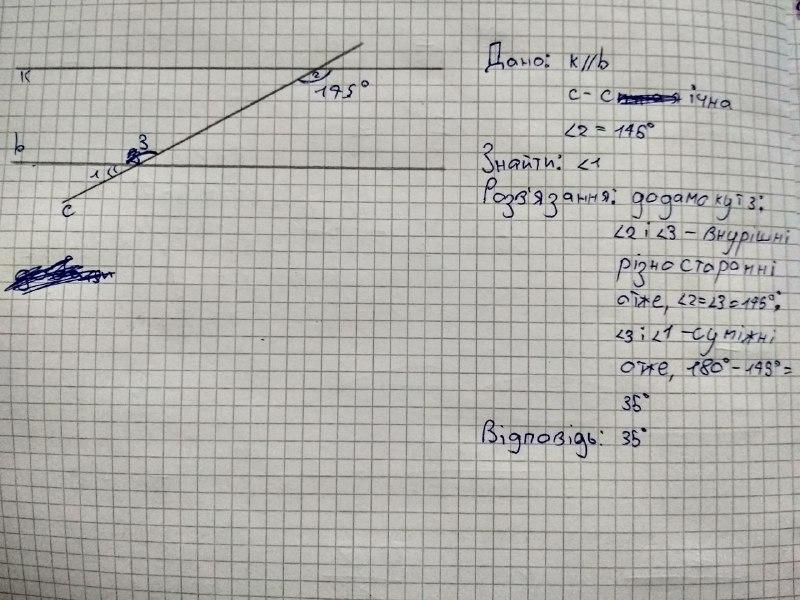 к
2
145°
b
3
1
c
Дано: к//b
с - с ічна
∠2 = 145°
Знайти: ∠1
Розв'язання: додамо кут 3:
∠2 і ∠3 - внурішні
різностаронні
отже, ∠2=∠3=145°;
∠3 і ∠1 - суміжні
отже, 180° - 145° =
35°
Відповідь: 35°